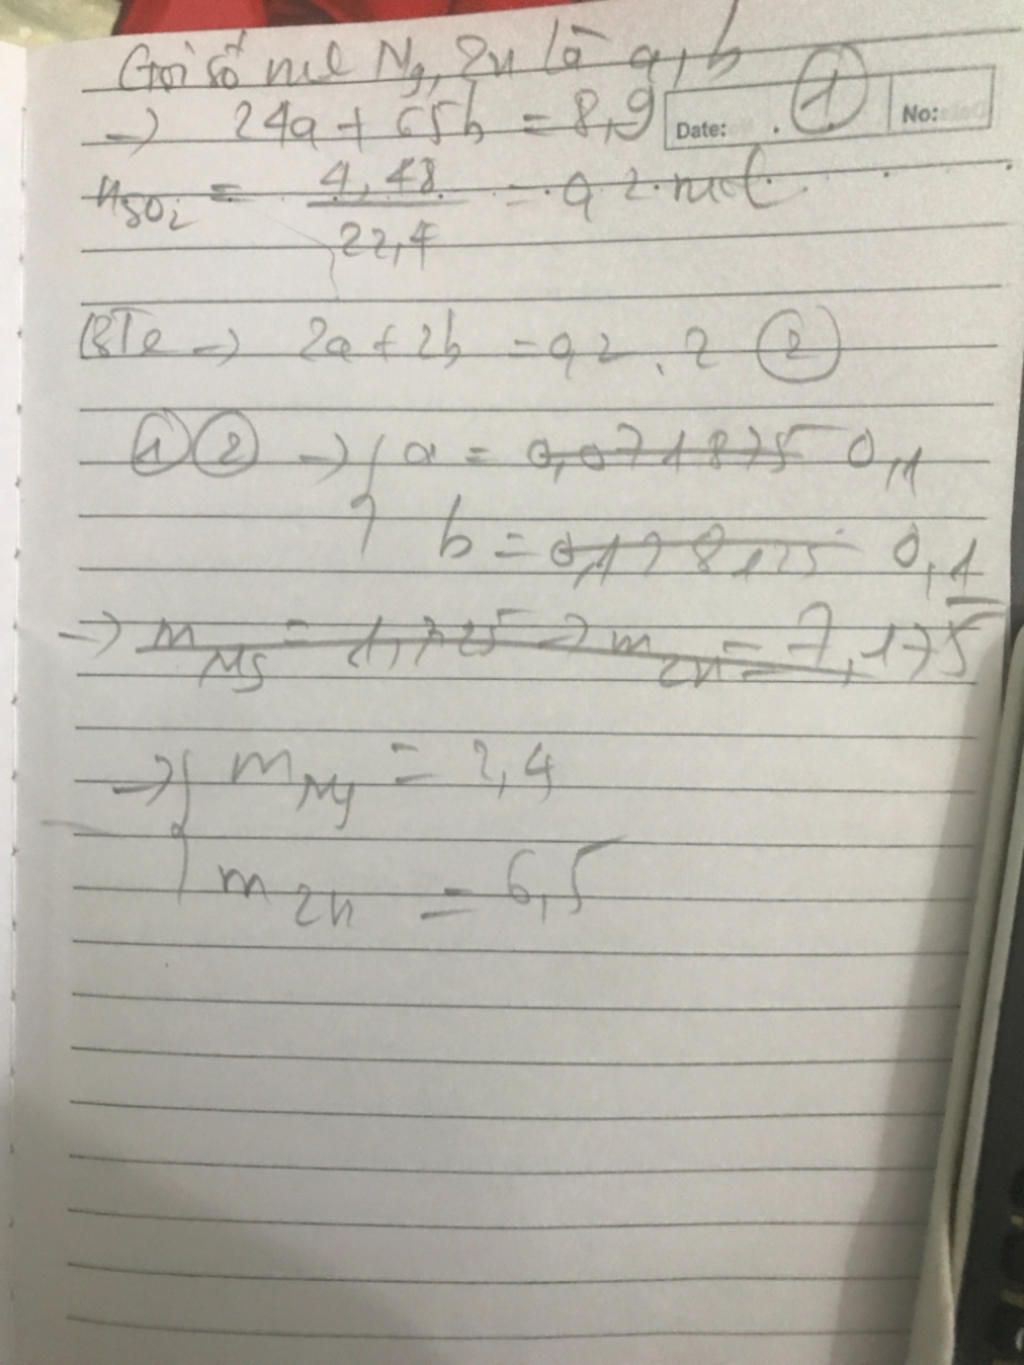 Gọi số mol Mg, Zn là a, b
→ 24a + 65b = 8,9 ①
Date: No:
nSO2 = 4,48 / 22,4 = 0,2 mol
BTe → 2a + 2b = 0,2 . 2 ②
① ② → { a = 0,071875 0,1
b = 0,128125 0,1
→ mMg = 1,725 → mZn = 7,175
→ { mMg = 2,4
mZn = 6,5